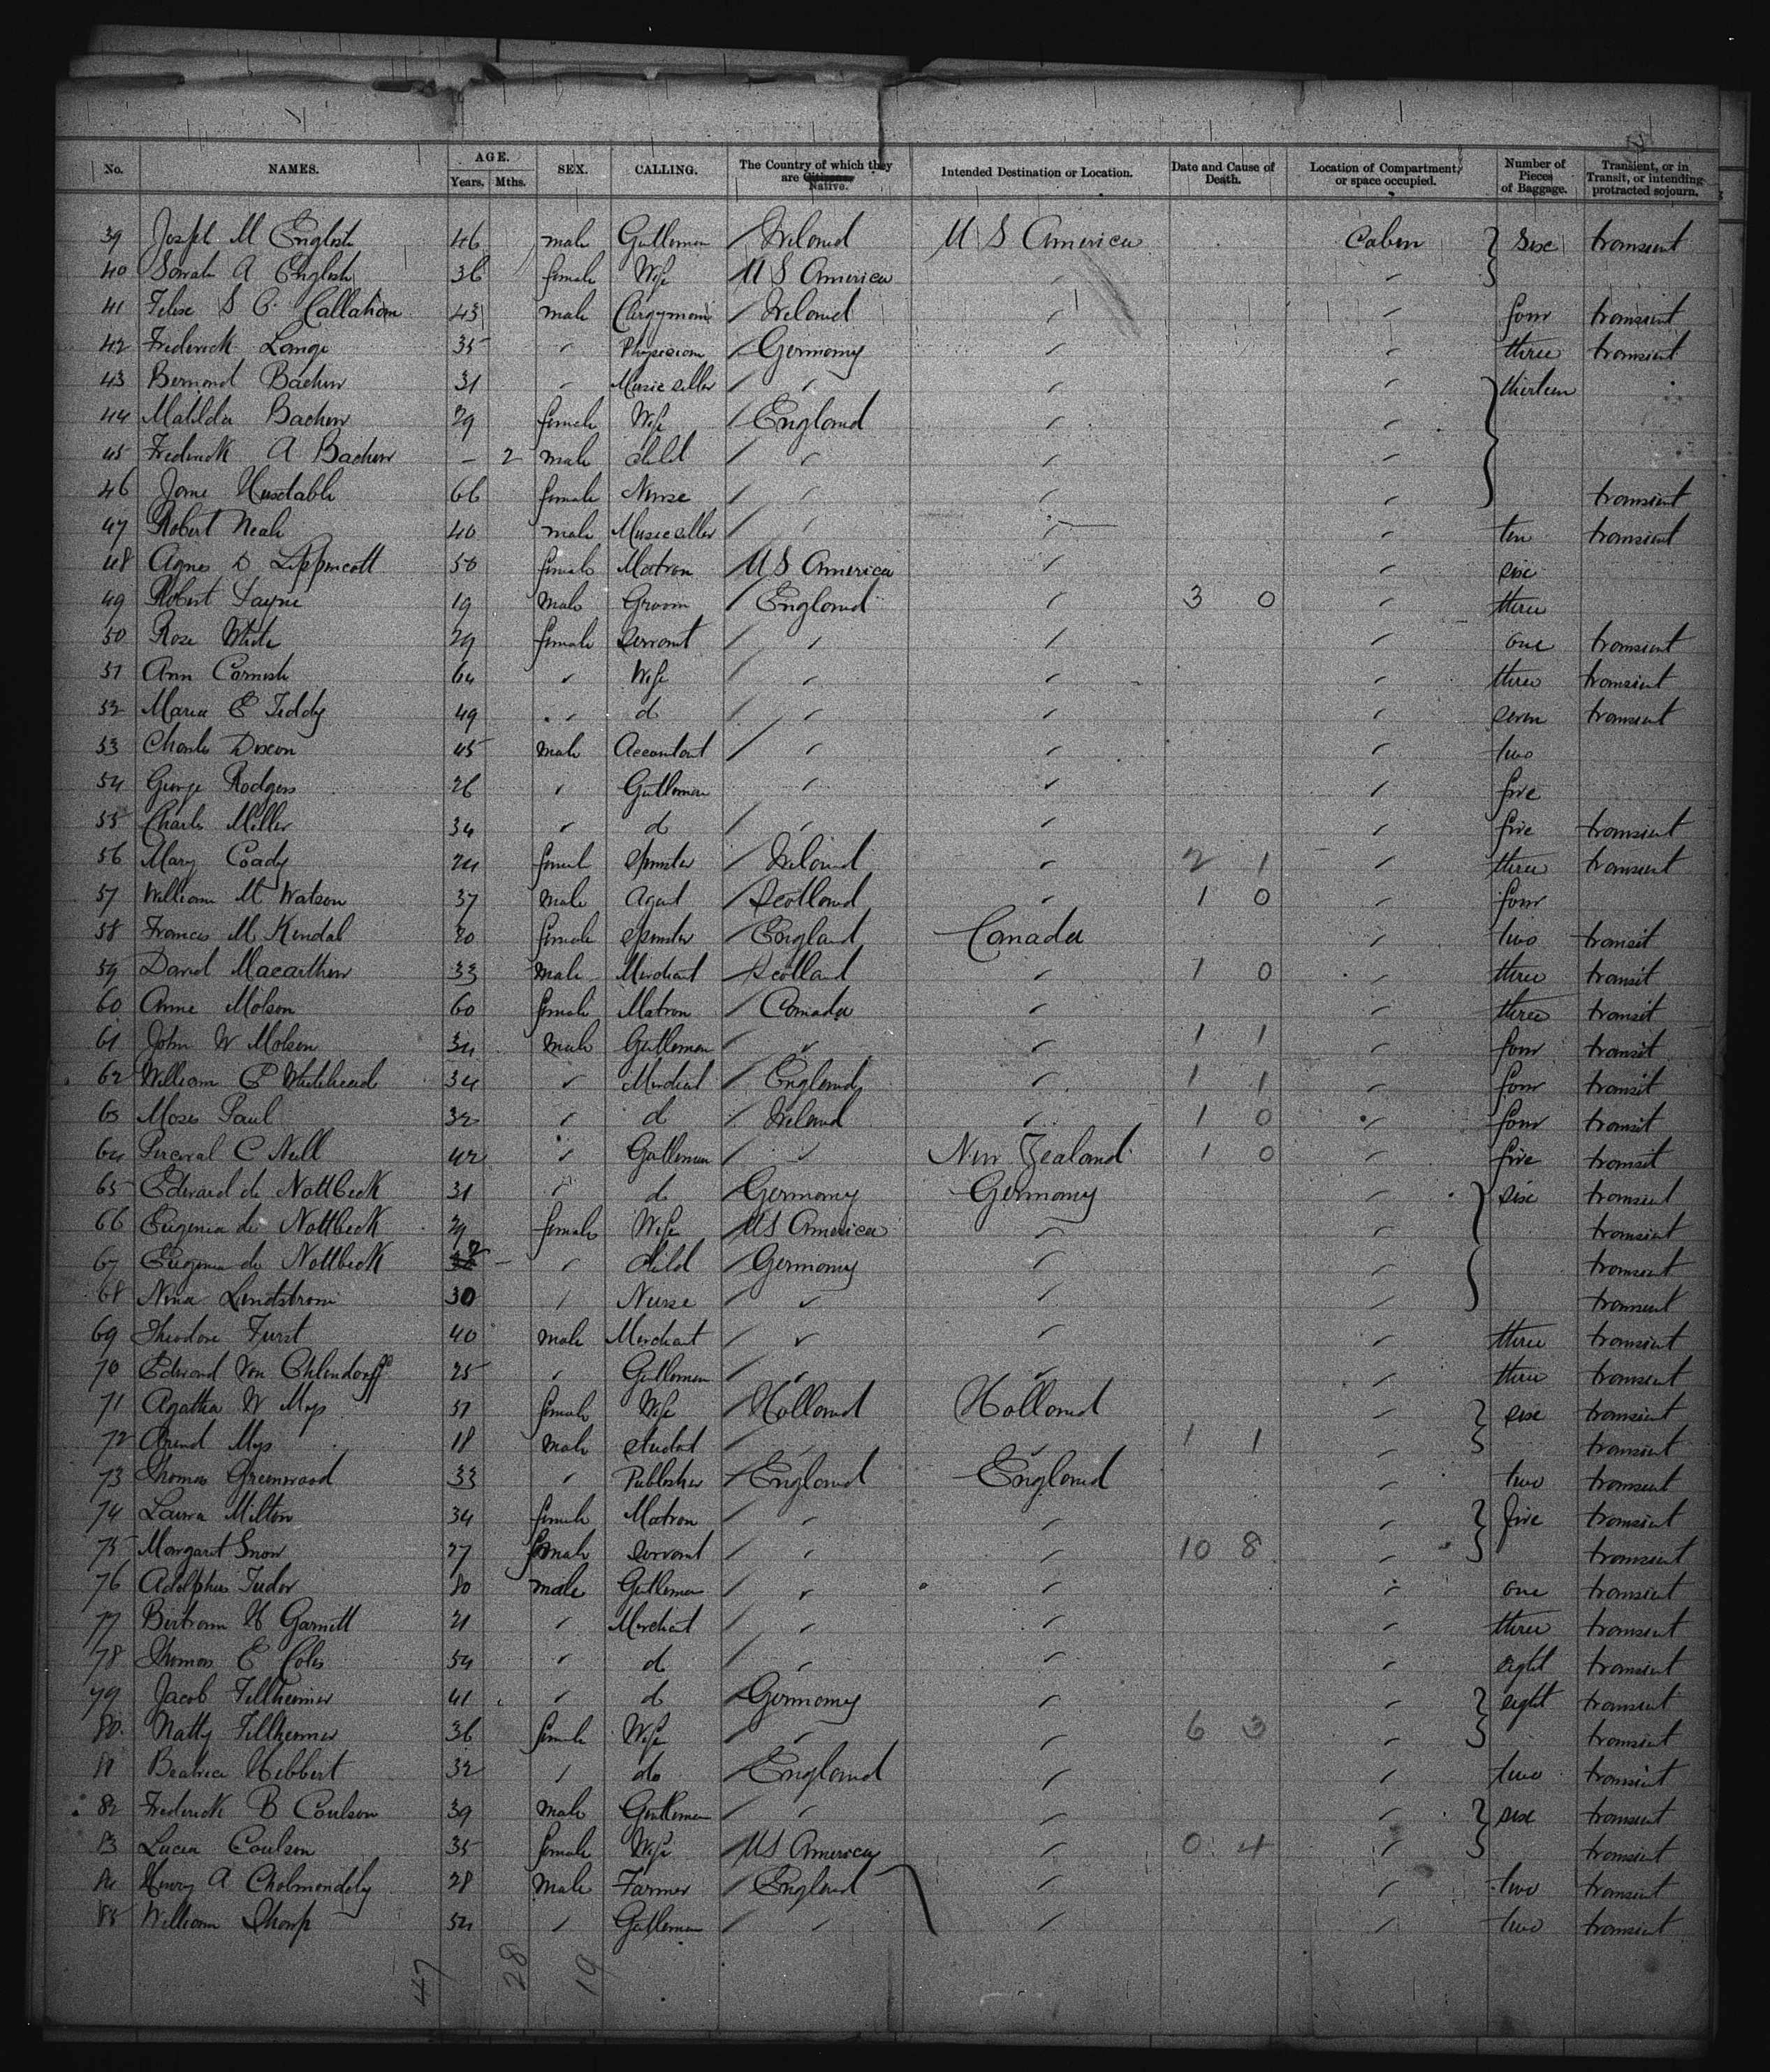 No. NAMES. AGE. Years. Mths. SEX. CALLING. The Country of which they are Citizens Native. Intended Destination or Location. Date and Cause of Death. Location of Compartment, or space occupied. Number of Pieces of Baggage. Transient, or in Transit, or intending protracted sojourn.
39 Joseph M English 46 male Gentleman / Ireland U S America Cabin } Six transient
40 Sarah A English 36 female Wife U S America ✓ ✓
41 Felix S C Callahan 43 male Clergyman / Ireland ✓ ✓ four transient
42 Frederick Lange 35 ✓ Physician / Germany ✓ ✓ three transient
43 Bernard Bachur 31 ✓ Music seller / ✓ ✓ ✓ } thirteen
44 Matilda Bachur 29 female Wife / England ✓ ✓
45 Frederick A Bachur – 2 male child / ✓ ✓ ✓
46 Jane Huxtable 66 female Nurse / ✓ ✓ ✓ transient
47 Robert Neale 40 male Music seller / ✓ ✓ ✓ ten transient
48 Agnes D Lippincott 50 female Matron U S America ✓ ✓ six
49 Robert Payne 19 male Groom / England ✓ 3 0 ✓ three
50 Rose White 29 female Servant / ✓ ✓ ✓ one transient
51 Ann Cornish 64 ✓ Wife / ✓ ✓ ✓ three transient
52 Maria E Teddy 49 ✓ do / ✓ ✓ ✓ seven transient
53 Charles Dixon 45 male Accountant / ✓ ✓ ✓ two
54 George Rodgers 26 ✓ Gentleman ✓ ✓ ✓ five
55 Charles Miller 34 ✓ do / ✓ ✓ ✓ five transient
56 Mary Coady 24 female Spinster / Ireland ✓ 2 1 ✓ three transient
57 William M Watson 37 male Agent / Scotland ✓ 1 0 ✓ four
58 Frances M Kendal 20 female Spinster / England Canada ✓ two transit
59 David Macarthur 33 male Merchant / Scotland ✓ 1 0 ✓ three transit
60 Anne Molson 60 female Matron / Canada ✓ ✓ three transit
61 John W Molson 34 male Gentleman / ✓ ✓ 1 1 ✓ four transit
62 William P Whitehead 34 ✓ Merchant / England ✓ 1 1 ✓ four transit
63 Moses Paul 32 ✓ do / Ireland ✓ 1 0 ✓ four transit
64 Perceval C Neill 42 ✓ Gentleman / ✓ New Zealand 1 0 ✓ five transit
65 Edward de Nottbeck 31 ✓ do Germany Germany ✓ } six transient
66 Eugenia de Nottbeck 29 female Wife U S America ✓ ✓ transient
67 Eugenia de Nottbeck 2 – ✓ child / Germany ✓ ✓ transient
68 Nina Lindstrom 30 ✓ Nurse / ✓ ✓ ✓ transient
69 Theodore Furst 40 male Merchant / ✓ ✓ ✓ three transient
70 Edward Von Ohlendorff 25 ✓ Gentleman / ✓ ✓ ✓ three transient
71 Agatha W Mys 51 female Wife / Holland Holland ✓ } six transient
72 Arend Mys 18 male student / ✓ ✓ 1 1 ✓ transient
73 Thomas Greenwood 33 ✓ Publisher / England England ✓ two transient
74 Laura Milton 34 female Matron / ✓ ✓ ✓ } five transient
75 Margaret Snow 27 female Servant / ✓ ✓ 10 8 ✓ transient
76 Adolphus Tudor 30 male Gentleman / ✓ ✓ ✓ one transient
77 Bertram H Garnett 21 ✓ Merchant / ✓ ✓ ✓ three transient
78 Thomas E Coles 54 ✓ do / ✓ ✓ ✓ eight transient
79 Jacob Fellheimer 41 ✓ do / Germany ✓ ✓ } eight transient
80 Natty Fellheimer 36 female Wife / ✓ ✓ 6 3 ✓ transient
81 Beatrice Hebbert 32 ✓ do / England ✓ ✓ two transient
82 Frederick B Coulson 39 male Gentleman / ✓ ✓ ✓ } six transient
83 Lucia Coulson 35 female Wife / U S America ✓ 0 4 ✓ transient
84 Henry A Cholmondely 28 male Farmer / England ✓ ✓ two transient
85 William Sharp 54 ✓ Gentleman / ✓ ✓ ✓ two transient
47 28 19